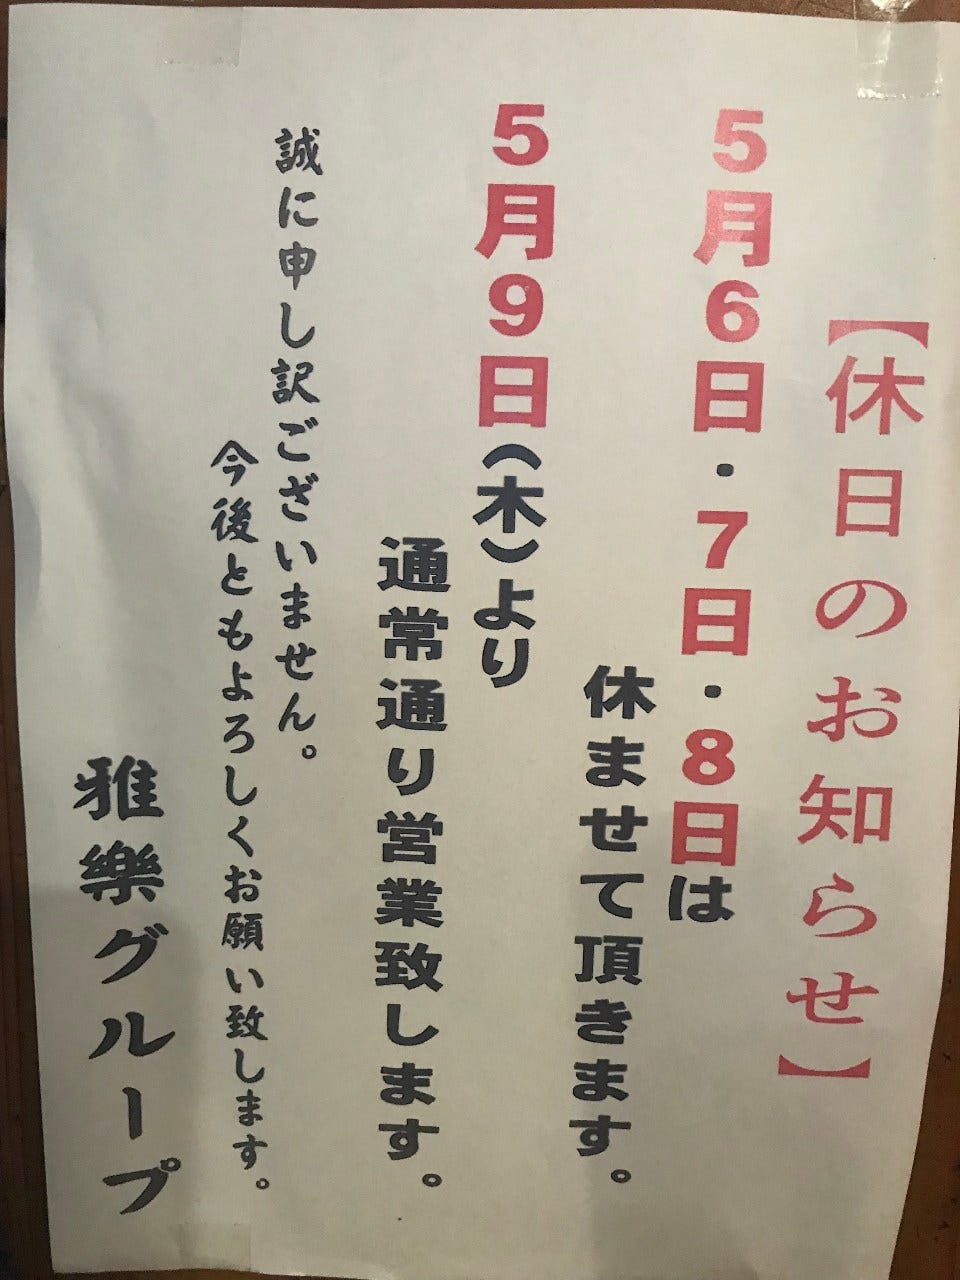 【休日のお知らせ】
5月6日・7日・8日は
休ませて頂きます。
5月9日(木)より
通常通り営業致します。
誠に申し訳ございません。
今後ともよろしくお願い致します。
雅樂グループ